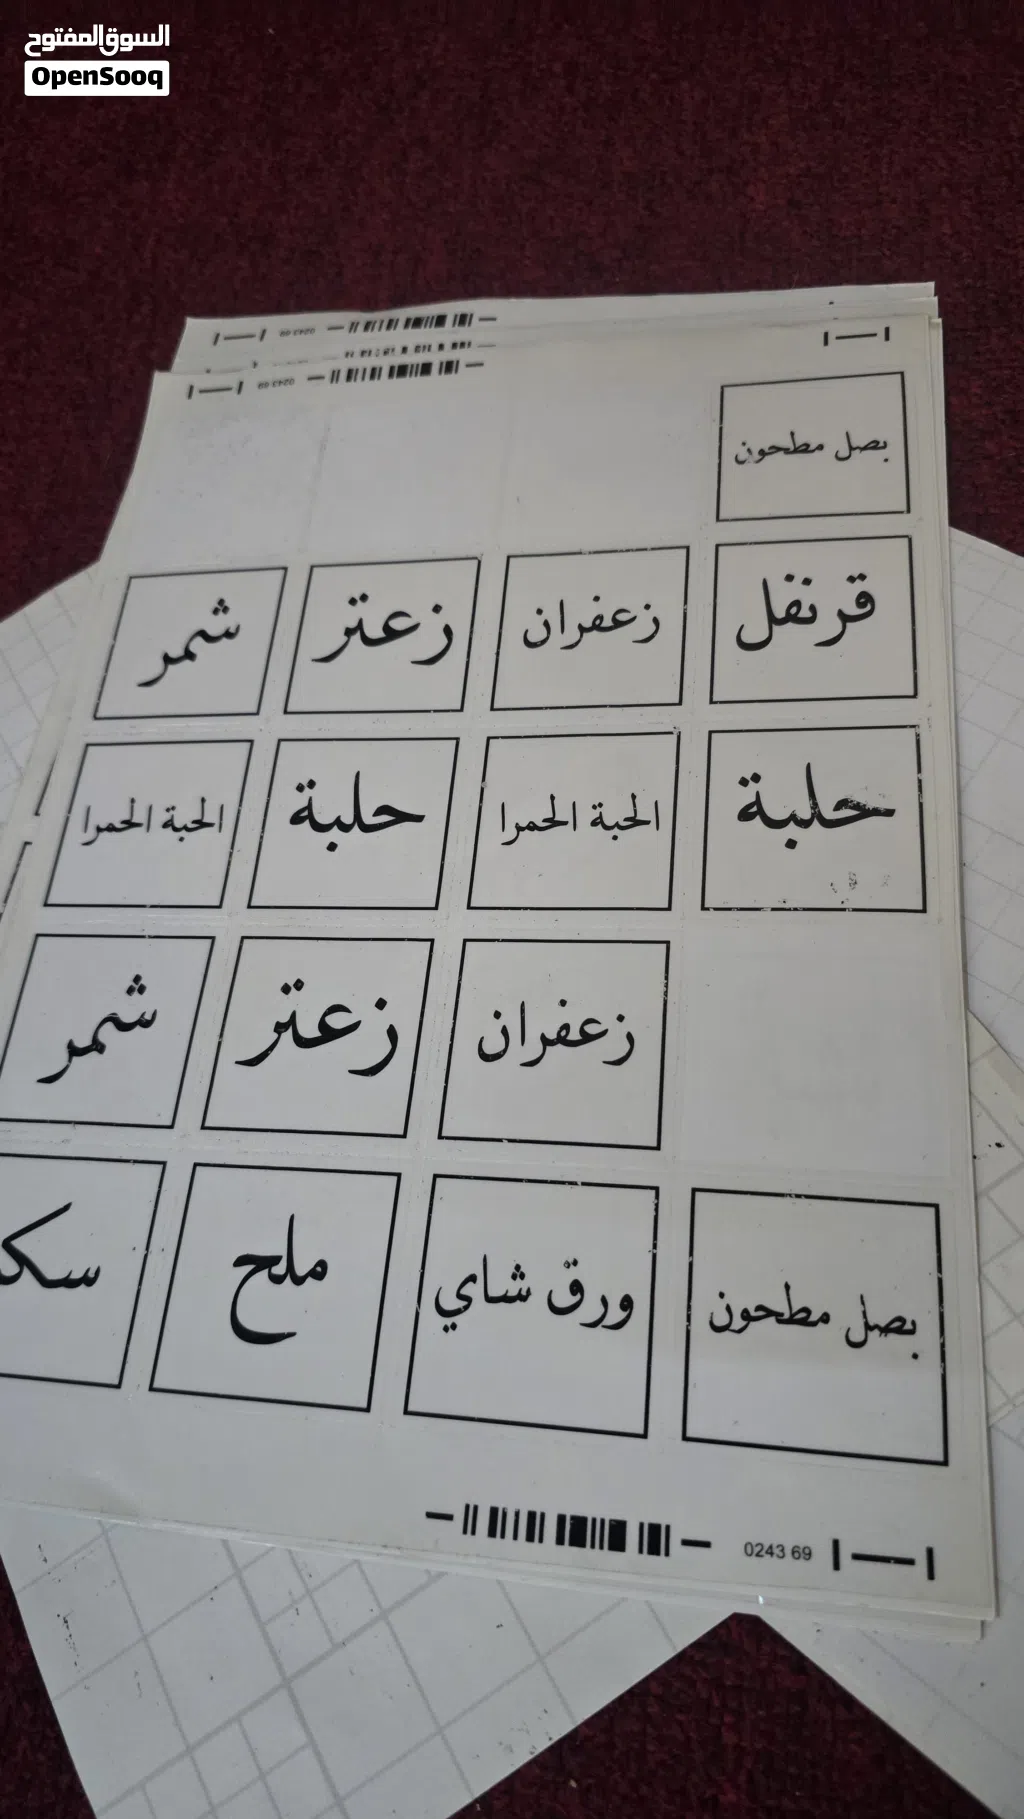 السوق المفتوح
OpenSooq
0243 69
0243 69
بصل مطحون
قرنفل
زعفران
زعتر
شمر
حلبة
الحبة الحمرا
حلبة
الحبة الحمرا
زعفران
زعتر
شمر
بصل مطحون
ورق شاي
ملح
0243 69